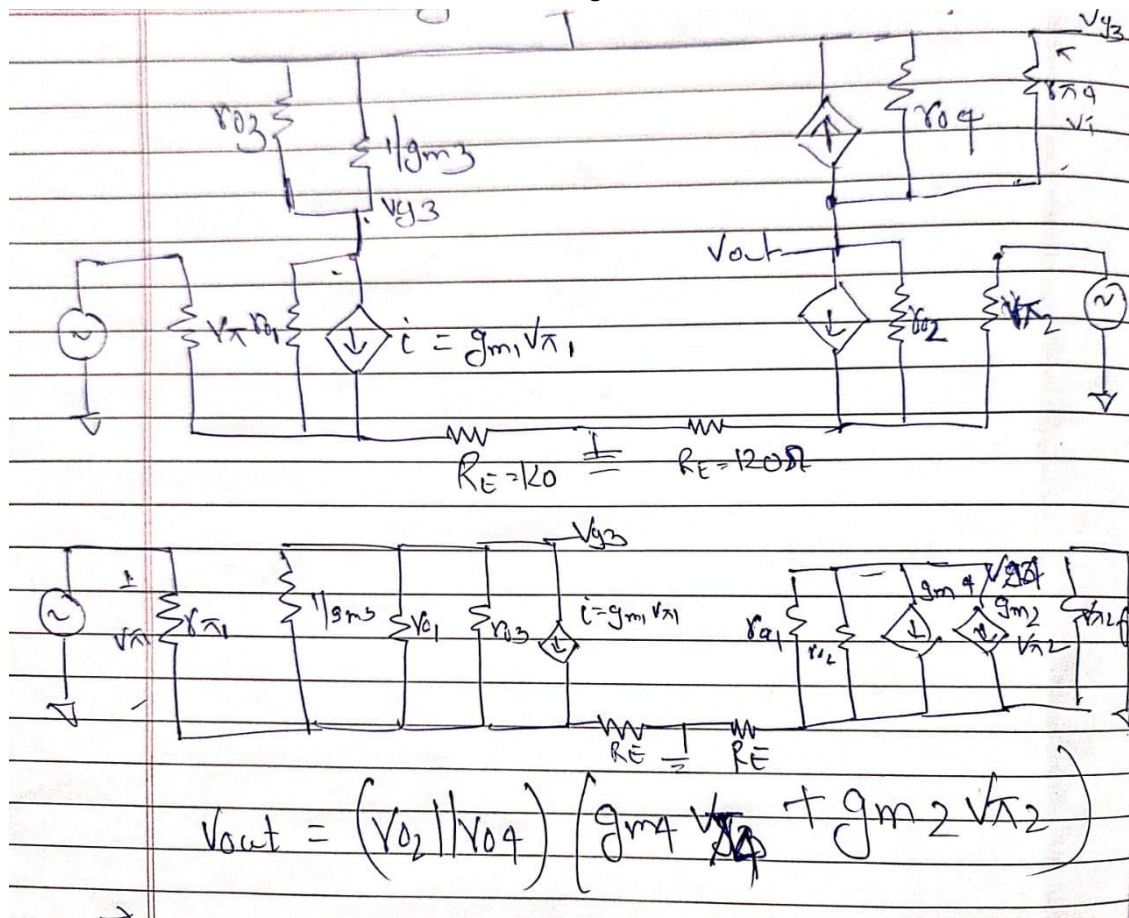 Vy3
ro3
1/gm3
ro4
rπ4
Vi
Vy3
Vout
Vπ
ro1
i = gm1 Vπ1
ro2
Vπ2
RE=120
RE=120Ω
Vy3
+
Vπ1
rπ1
1/gm3
ro1
ro3
i=gm1 Vπ1
ro1
ro2
gm4
gm2
Vπ2
RE
RE
Vout = (ro2||ro4) (gm4 + gm2 Vπ2)